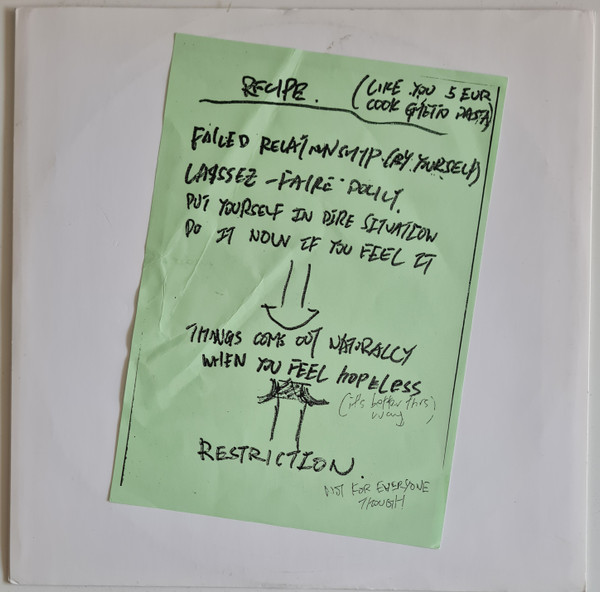 RECIPE. (LIKE YOU 5 EUR
COOK GHETTO PASTA)
FAILED RELATIONSHIP. (BY YOURSELF)
LAISSEZ-FAIRE POLICY.
PUT YOURSELF IN DIRE SITUATION
DO IT NOW IF YOU FEEL IT
THINGS COME OUT NATURALLY
WHEN YOU FEEL HOPELESS
(it's better this
way)
RESTRICTION.
NOT FOR EVERYONE
THOUGH